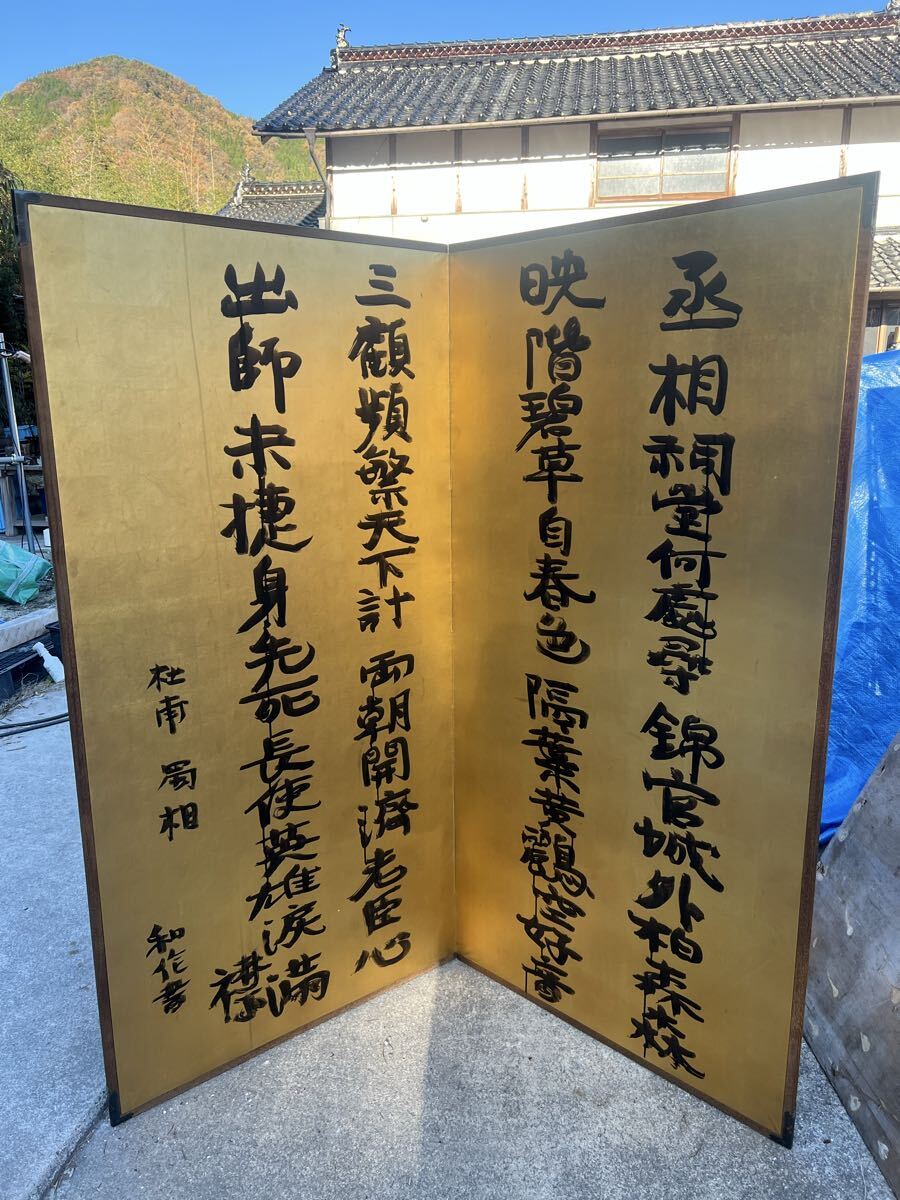 丞相祠堂何處尋錦官城外柏森森
映階碧草自春色隔葉黄鸝空好音
三顧頻繁天下計両朝開濟老臣心
出師未捷身先死長使英雄涙満襟
杜甫 蜀相 和作書